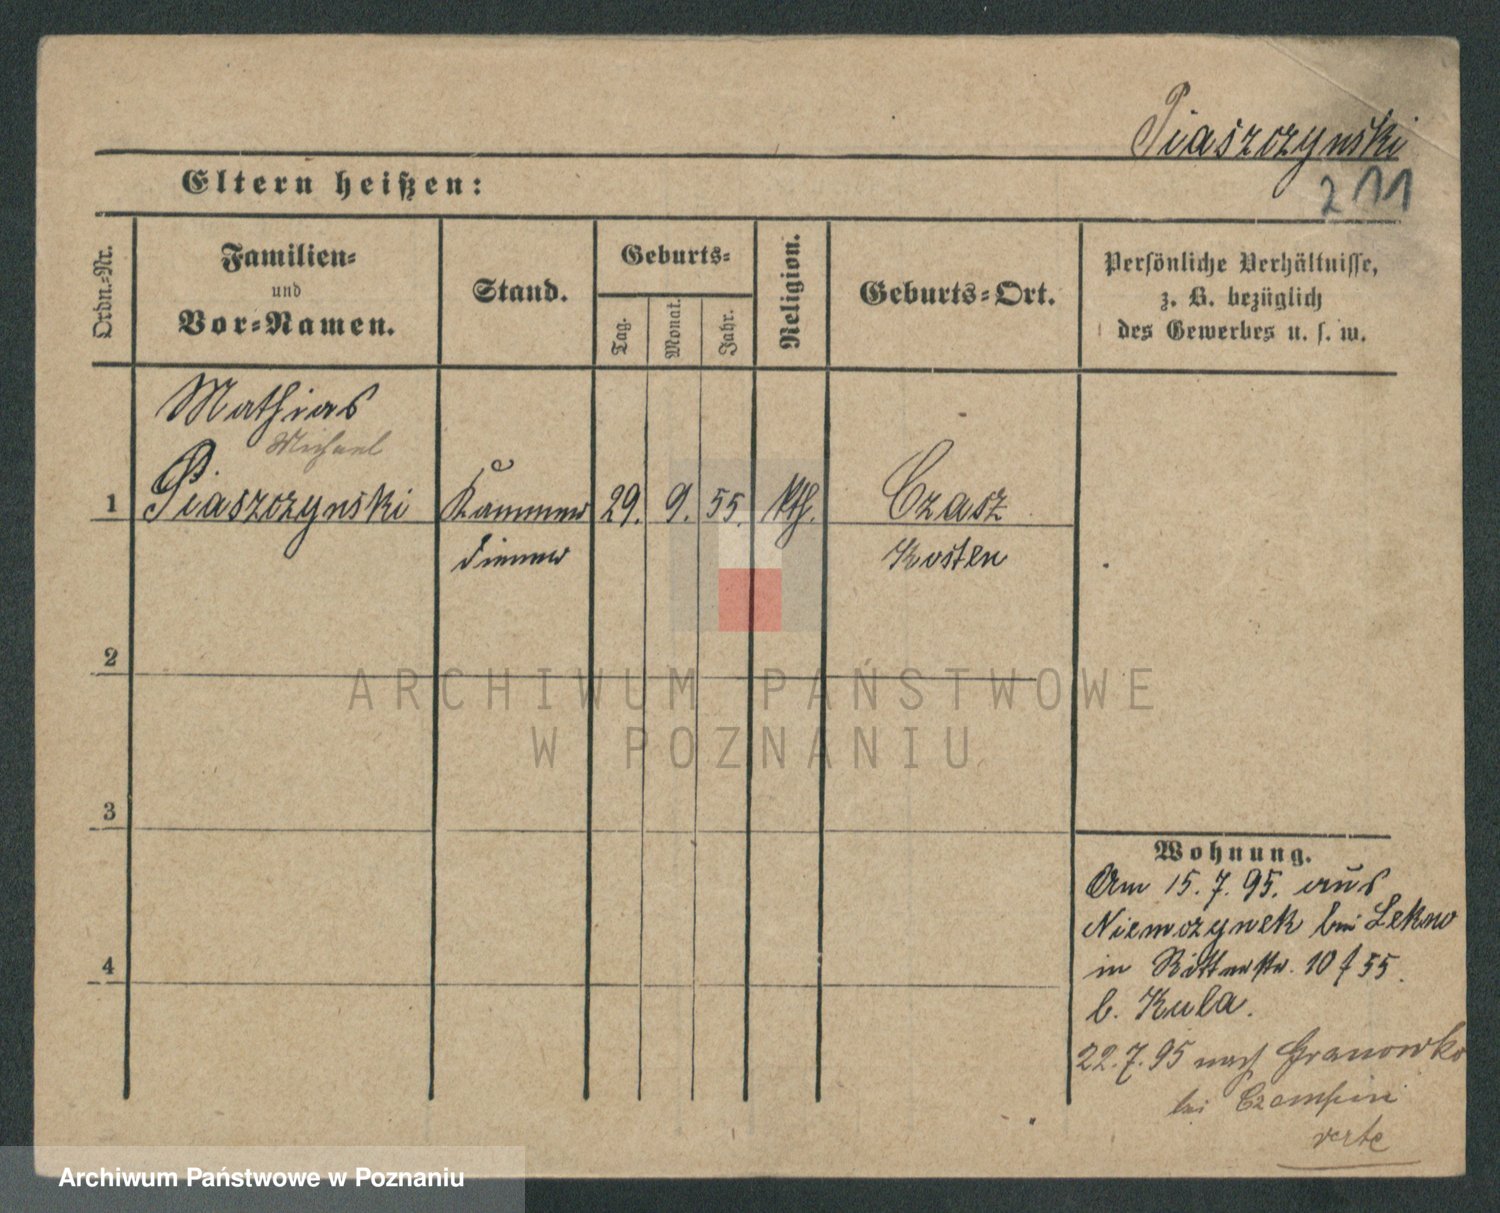 Piaszczynski
211
Eltern heißen:
Ordn.-Nr.
Familien-
und
Vor-Namen.
Stand.
Geburts-
Tag.
Monat.
Jahr.
Religion.
Geburts-Ort.
Persönliche Verhältnisse,
z. B. bezüglich
des Gewerbes u. s. w.
Mathias
Michael
1 Piaszczynski Kammer 29. 9. 55. kth. Czasz
diener Kosten
2
ARCHIWUM PAŃSTWOWE
W POZNANIU
3
Wohnung.
Am 15. 7. 95. aus
Niemczynek bei Lekno
4
in Ritterstr. 10 f 55.
b. Kula.
22.7.95 nach Granowko
bei Czempin
verte
Archiwum Państwowe w Poznaniu